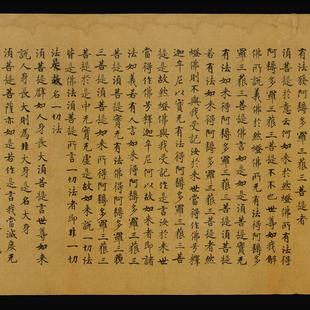 有法發阿耨多羅三藐三菩提者
須菩提於意云何如來於然燈佛所有法得
阿耨多羅三藐三菩提不不也世尊如我解
佛所說義佛於然燈佛所无有法得阿耨多
羅三藐三菩提佛言如是如是須菩提實无
有法如來得阿耨多羅三藐三菩提須菩提若
有法如來得阿耨多羅三藐三菩提者然
燈佛則不與我受記汝於來世當得作佛號釋
迦牟尼以實无有法得阿耨多羅三藐三菩
提是故然燈佛與我受記作是言汝於來世
當得作佛號釋迦牟尼何以故如來者即諸
法如義若有人言如來得阿耨多羅三藐三
菩提須菩提實无有法佛得阿耨多羅三藐
三菩提須菩提如來所得阿耨多羅三藐三
菩提於是中无實无虛是故如來說一切法
皆是佛法須菩提所言一切法者即非一切
法是故名一切法
須菩提譬如人身長大須菩提言世尊如來
說人身長大則為非大身是名大身
須菩提菩薩亦如是若作是言我當滅度无